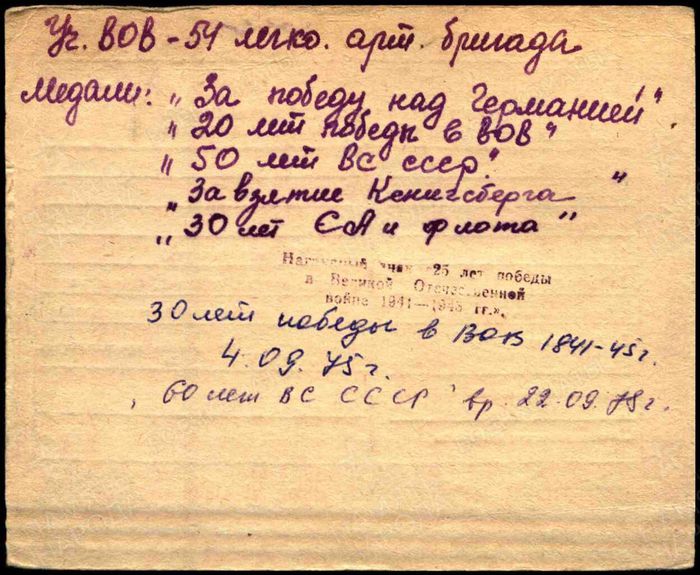 Уч. ВОВ - 54 легко. арт. бригада
Медали: „За победу над Германией".
„20 лет победы в ВОВ"
„50 лет ВС СССР."
„За взятие Кенигсберга"
„30 лет СА и флота"
Нагрудный знак «25 лет победы
в Великой Отечественной
войне 1941—1945 гг.».
30 лет победы в ВОВ 1841-45г.
4.09.75г.
„60 лет ВС СССР" вр. 22.09.78г.